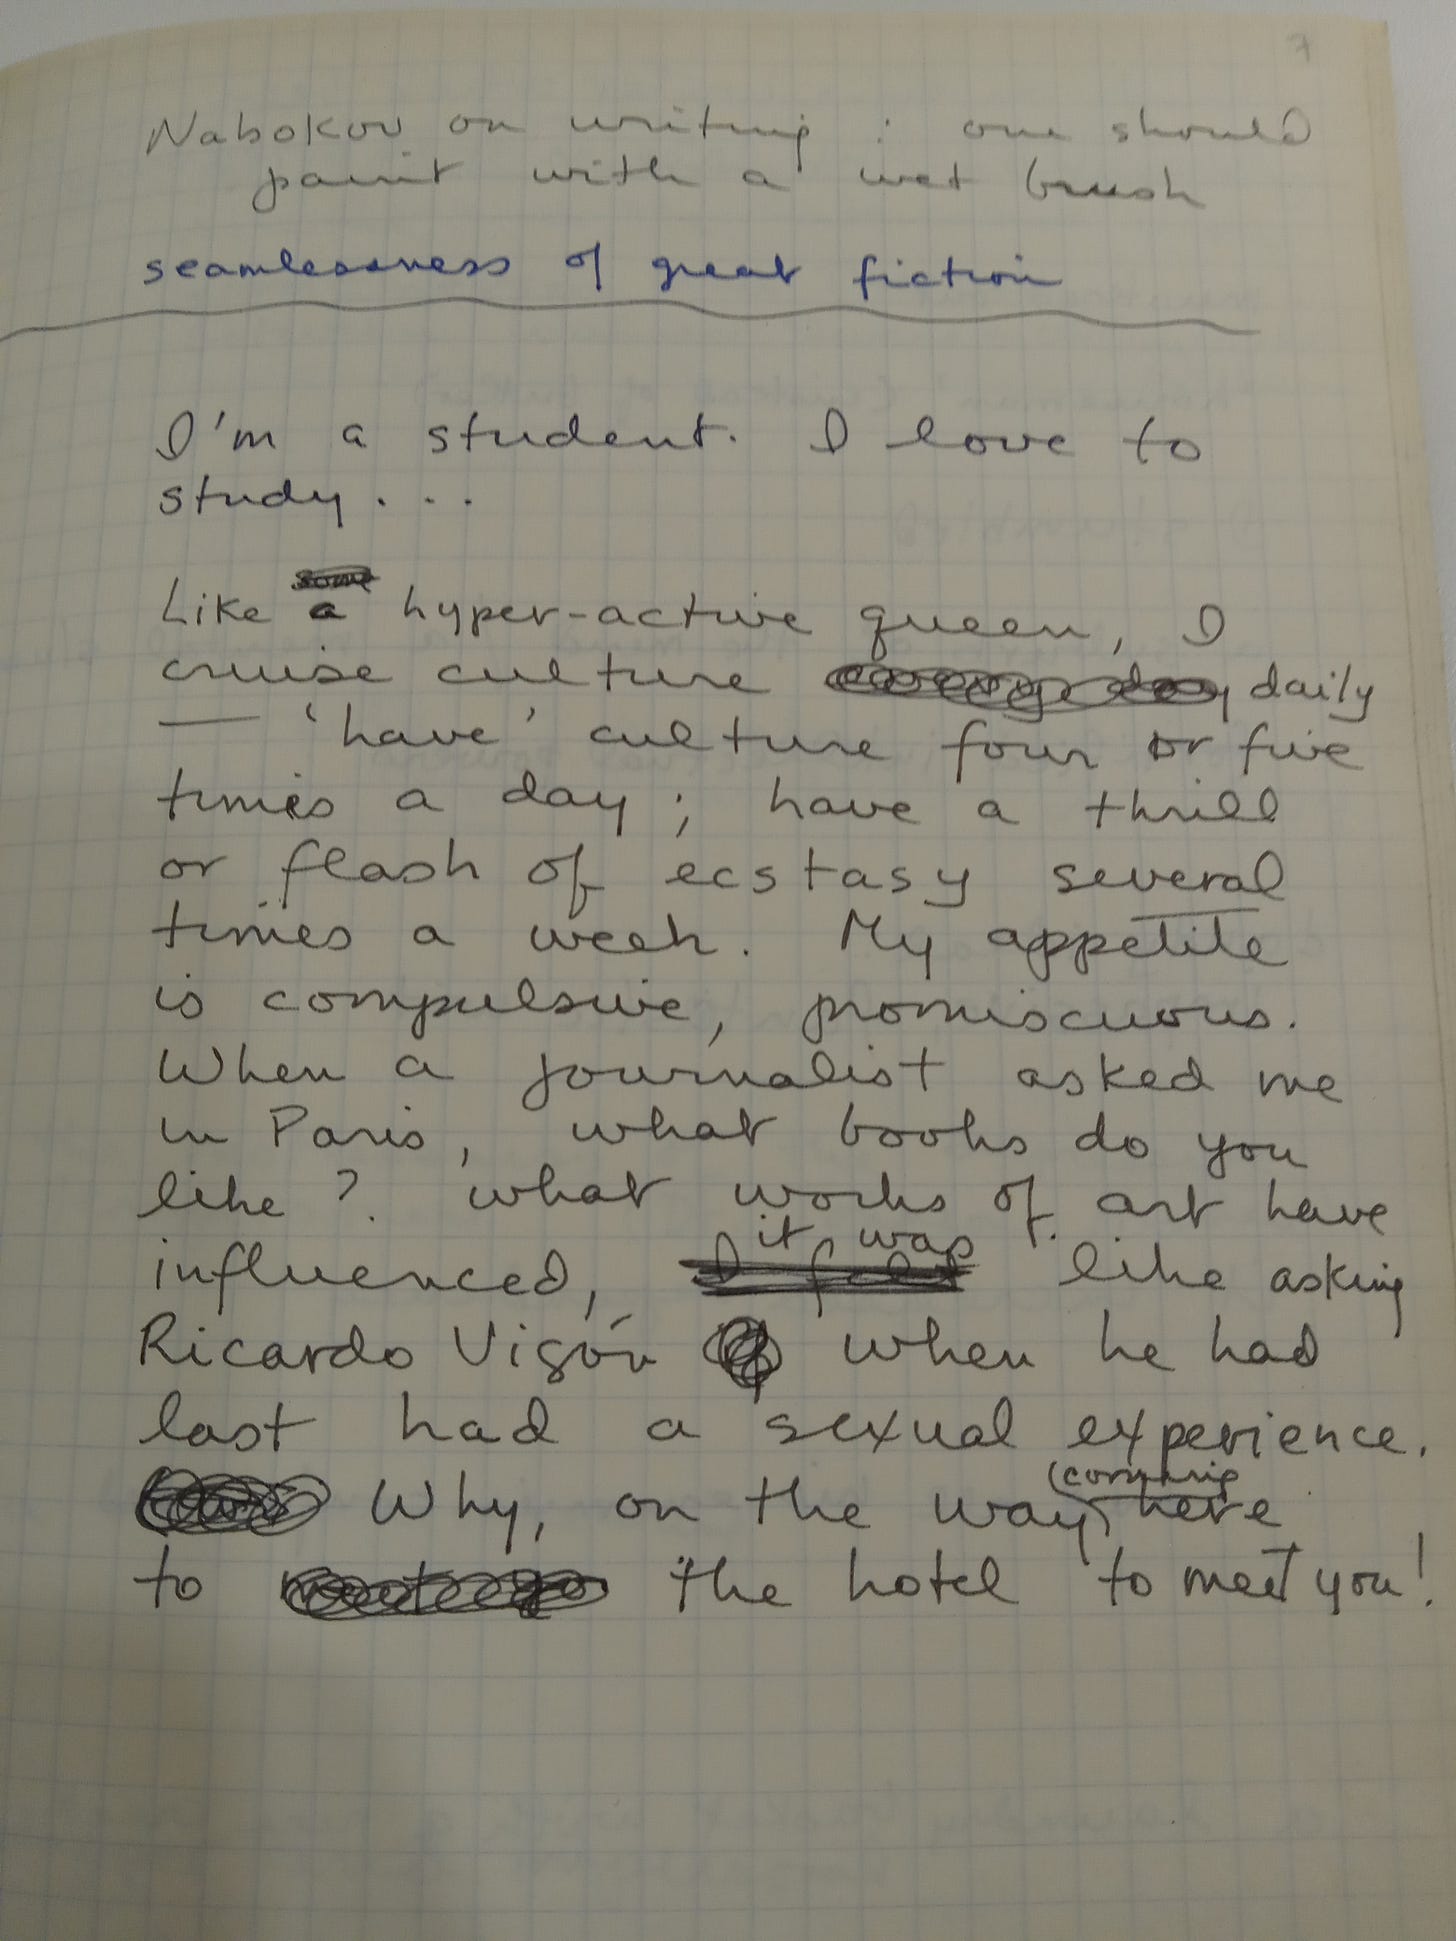 7
Nabokov on writing : one should
paint with a wet brush
seamlessness of great fiction
I'm a student. I love to
study...
some
Like a hyper-active queen, I
cruise culture every day daily
— 'have' culture four or five
times a day; have a thrill
or flash of ecstasy several
times a week. My appetite
is compulsive, promiscuous.
When a journalist asked me
in Paris, what books do you
like? what works of art have
it was
influenced, I felt like asking
Ricardo Vigón when he had
last had a sexual experience.
(coming
Why, on the way here
to the hotel to meet you!